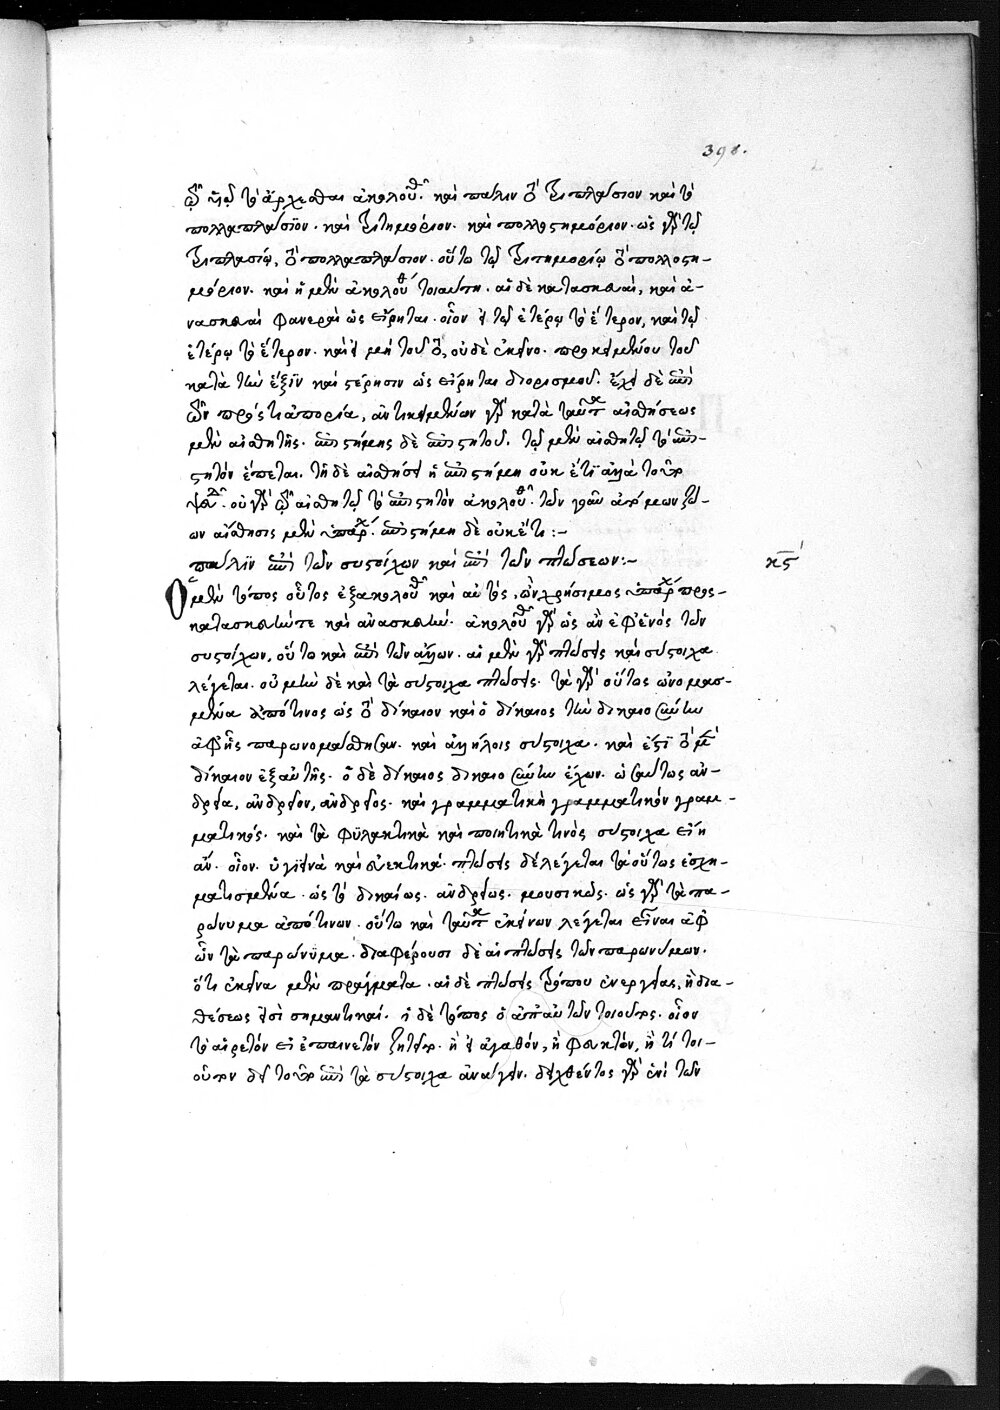 398.
τῷ τὸ ἄρχεσθαι ἀκολουθεῖ. καὶ πάλιν τὸ τριπλάσιον καὶ τὸ
πολλαπλάσιον. καὶ τριτημόριον. καὶ πολλοστημόριον. ὡς γὰρ τῷ
τριπλασίῳ, τὸ πολλαπλάσιον. οὕτω τῷ τριτημορίῳ τὸ πολλοστη-
μόριον. καὶ ἡ μὲν ἀκολουθ τοιαύτη. αἱ δὲ κατασκευαί, καὶ ἀ-
νασκευαί φανεραὶ ὡς εἴρηται. οἷον εἰ τῷ ἑτέρῳ τὸ ἕτερον, καὶ τῷ
ἑτέρῳ τὸ ἕτερον. καὶ εἰ μὴ τοῦτο, οὐδὲ ἐκεῖνο. προκειμένου τοῦ
κατὰ τὴν ἕξιν καὶ στέρησιν ὡς εἴρηται διορισμοῦ. ἔχει δὲ ἐπὶ
τῶν πρός τι ἀπορία, ἀντικειμένων γὰρ κατὰ ταῦτα αἰσθήσεως
μὲν αἰσθητῆς. ἐπιστήμης δὲ ἐπιστητοῦ. τῷ μὲν αἰσθητῷ τὸ ἐπι-
στητὸν ἕπεται. τῇ δὲ αἰσθήσει ἡ ἐπιστήμη οὐκ ἔτι ἀλλὰ τοῦτο
ψεῦδ. οὐ γὰρ τῷ αἰσθητῷ τὸ ἐπιστητὸν ἀκολουθεῖ. τῶν γοῦν ἀτόμων ζώ-
ων αἴσθησις μὲν ὑπάρχ. ἐπιστήμη δὲ οὐκέτι :-
πάλιν ἐπὶ τῶν συστοίχων καὶ ἐπὶ τῶν πτώσεων:- κϛ
Ὁ μὲν τόπος οὗτος ἐξακολουθεῖ καὶ αὐτὸς, ὢν χρήσιμος ὑπάρχ πρὸς
κατασκευήν τε καὶ ἀνασκευήν. ἀκολουθεῖ γὰρ ὡς ἂν ἐφ' ἑνὸς τῶν
συστοίχων, οὕτω καὶ ἐπὶ τῶν ἄλλων. αἱ μὲν γὰρ πτώσεις καὶ σύστοιχα
λέγεται. οὐ μὴν δὲ καὶ τὰ σύστοιχα πτώσεις. τὰ γὰρ οὕτως ὠνομασ-
μένα ἀπό τινος ὡς τὸ δίκαιον καὶ ὁ δίκαιος τὴν δικαιοσύνην
ἀφ' ἧς παρωνομάσθησαν. καὶ ἀλλήλοις σύστοιχα. καὶ ἔστι τὸ μὲν
δίκαιον ἐξ αὐτῆς. ὁ δὲ δίκαιος δικαιοσύνην ἔχων. ὡσαύτως ἀν-
δρεία, ἀνδρεῖον, ἀνδρεῖος. καὶ γραμματικὴ γραμματικὸν γραμ-
ματικός. καὶ τὰ φυλακτικὰ καὶ ποιητικὰ τινὸς σύστοιχα εἴη
ἄν. οἷον. ὑγιεινὰ καὶ εὐεκτικά. πτώσεις δὲ λέγεται τὰ οὕτως ἐσχη-
ματισμένα. ὡς τὸ δικαίως. ἀνδρείως. μουσικῶς. ὡς γὰρ τὰ πα-
ρώνυμα ἀπό τινων. οὕτω καὶ ταῦτα ἐκείνων λέγεται εἶναι ἀφ'
ὧν τὰ παρώνυμα. διαφέρουσι δὲ αἱ πτώσεις τῶν παρωνύμων.
ὅτι ἐκεῖνα μὲν πράγματα. αἱ δὲ πτώσεις τρόπου ἐνεργείας, ἢ δια-
θέσεως εἰσὶ σημαντικαί. ὁ δὲ τόπος ὁ ἀπ' αὐτῶν τοιοῦτος. οἷον
τὸ αἱρετὸν εἰ ἐπαινετὸν ζητεῖται. ἢ εἰ ἀγαθόν, ἢ φευκτὸν, ἢ τί τοι-
οῦτον δεῖ τοῦτο ἐπὶ τὰ σύστοιχα ἀνάγειν. δειχθέντος γὰρ ἑνὶ τῶν